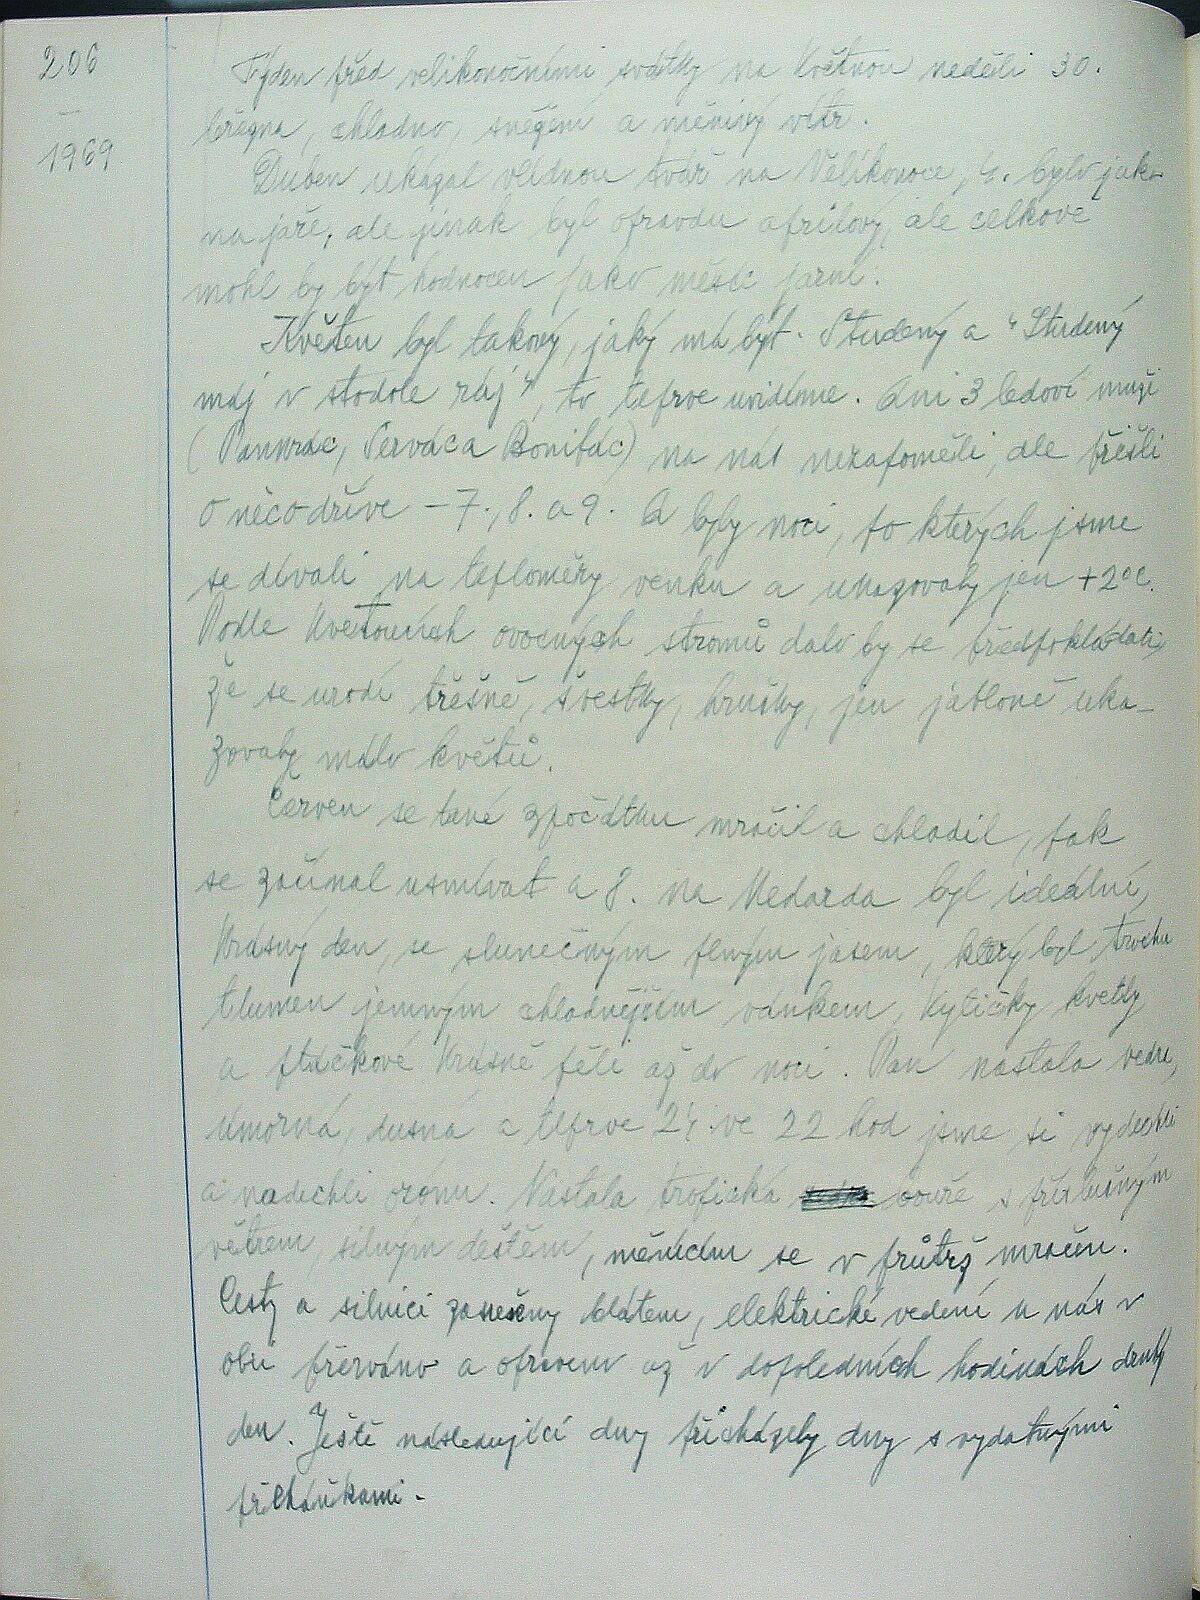 206
–
1969
Týden před velikonočními svátky na Květnou neděli 30.
března, chladno, sněžení a měnivý vítr.
Duben ukázal vlídnou tvář na Velikonoce, 4. bylo jako
na jaře, ale jinak byl opravdu aprílový, ale celkově
mohl by být hodnocen jako měsíc jarní.
Květen byl takový, jaký má být. Studený a "Studený
máj v stodole ráj", to teprve uvidíme. Ani 3 ledoví muži
(Pankrác, Servác a Bonifác) na nás nezapoměli, ale přišli
o něco dříve – 7., 8. a 9. A byly noci, po kterých jsme
se dívali na teploměry venku a ukazovaly jen +2°C.
Podle kvetoucích ovocných stromů dalo by se předpokládati,
že se urodí třešně, švestky, hrušky, jen jabloně uka-
zovaly málo květů.
Červen se také zpočátku mračil a chladil, pak
se začínal usmívat a 8. na Medarda byl ideální,
krásný den, se slunečným plným jasem, který byl trochu
tlumen jemným chladnějším vánkem, kytičky kvetly
a ptáčkové krásně pěli až do noci. Pak nastala vedra,
úmorná, dusná a teprve 24. ve 22 hod jsme si vydechli
a nadechli ozónu. Nastala tropická bouře s průdušným
větrem, silným deštěm, měnícím se v průtrž mračen.
Cesty a silnici zaneseny blátem, elektrické vedení u nás v
obci přerváno a opraveno až v dopoledních hodinách druhý
den. Ještě následující dny přicházely dny s vydatnými
přeháňkami.